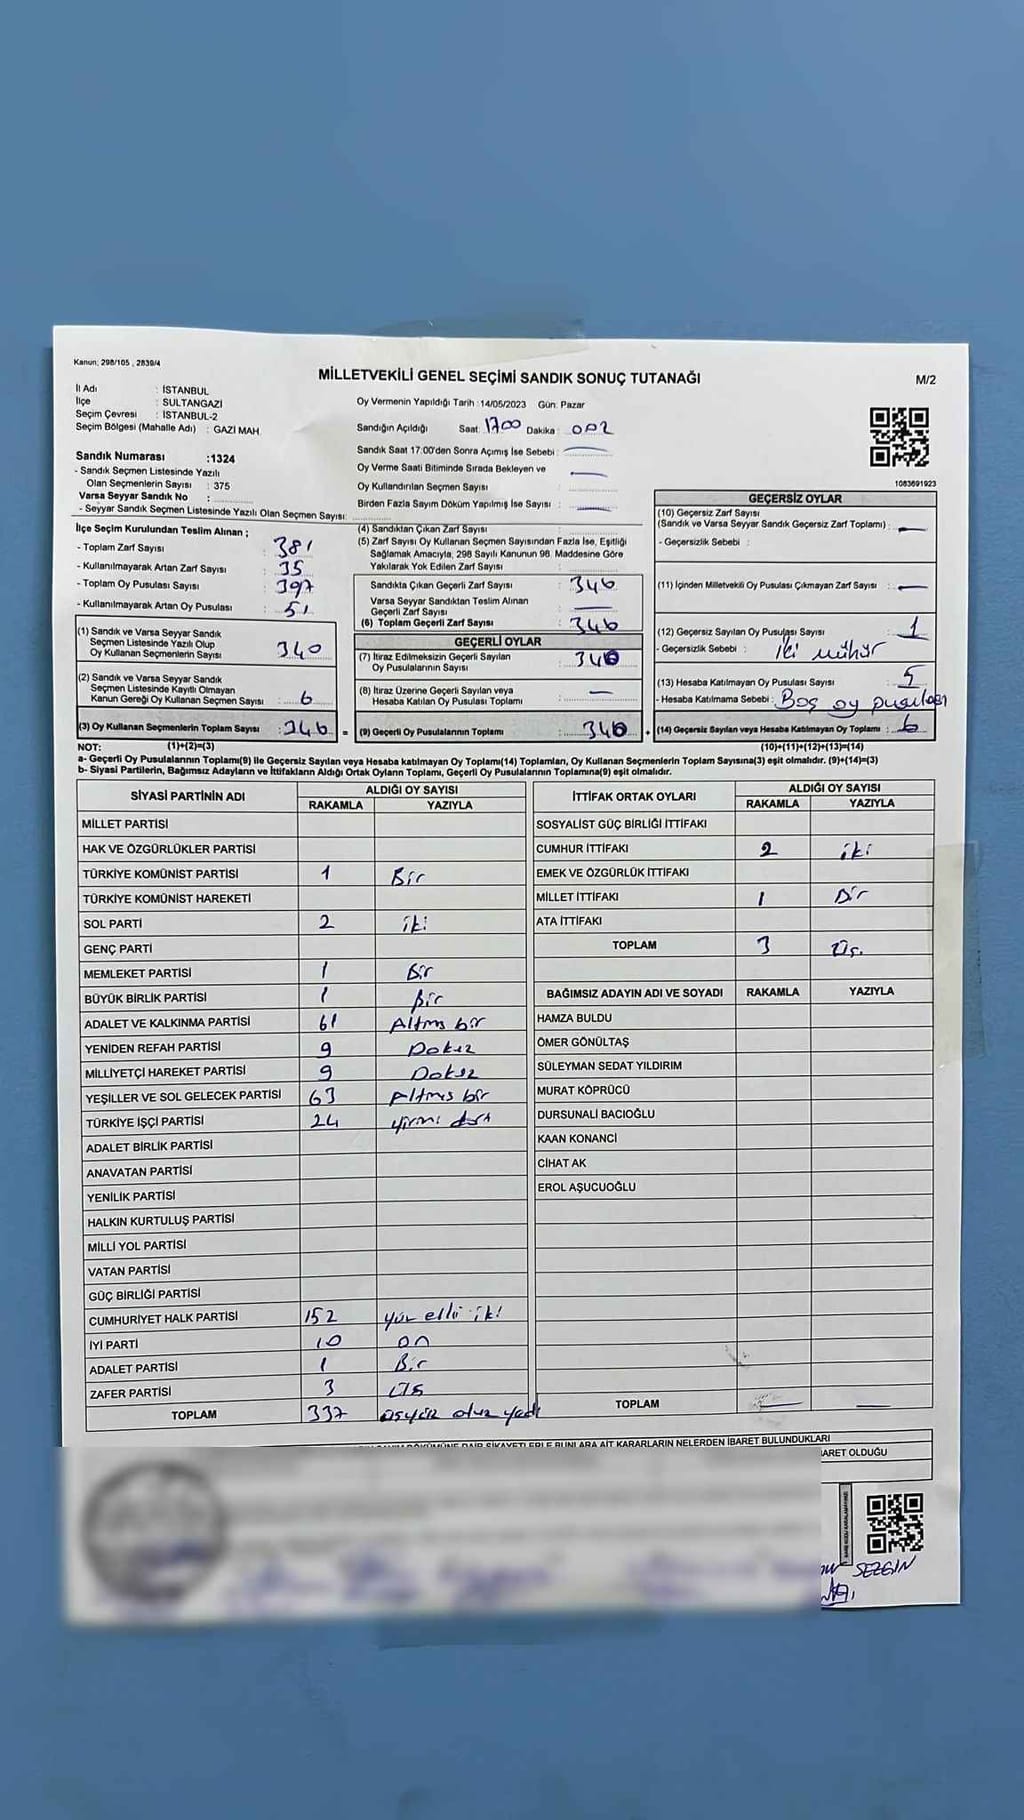 Kanun: 298/105 , 2839/4
MİLLETVEKİLİ GENEL SEÇİMİ SANDIK SONUÇ TUTANAĞI
M/2
İl Adı : İSTANBUL
İlçe : SULTANGAZİ
Seçim Çevresi : İSTANBUL-2
Seçim Bölgesi (Mahalle Adı) : GAZİ MAH.
Oy Vermenin Yapıldığı Tarih : 14/05/2023 Gün: Pazar
Sandığın Açıldığı Saat: 1700 Dakika : 002
Sandık Saat 17:00'den Sonra Açımış İse Sebebi :
Oy Verme Saati Bitiminde Sırada Bekleyen ve
Oy Kullandırılan Seçmen Sayısı :
Birden Fazla Sayım Döküm Yapılmış İse Sayısı :
Sandık Numarası :1324
- Sandık Seçmen Listesinde Yazılı
Olan Seçmenlerin Sayısı : 375
Varsa Seyyar Sandık No :
- Seyyar Sandık Seçmen Listesinde Yazılı Olan Seçmen Sayısı:
1083691923
İlçe Seçim Kurulundan Teslim Alınan ;
- Toplam Zarf Sayısı : 381
- Kullanılmayarak Artan Zarf Sayısı : 35
- Toplam Oy Pusulası Sayısı : 397
- Kullanılmayarak Artan Oy Pusulası : 51
(1) Sandık ve Varsa Seyyar Sandık
Seçmen Listesinde Yazılı Olup
Oy Kullanan Seçmenlerin Sayısı : 340
(2) Sandık ve Varsa Seyyar Sandık
Seçmen Listesinde Kayıtlı Olmayan
Kanun Gereği Oy Kullanan Seçmen Sayısı : 6
(3) Oy Kullanan Seçmenlerin Toplam Sayısı : 346
(4) Sandıktan Çıkan Zarf Sayısı :
(5) Zarf Sayısı Oy Kullanan Seçmen Sayısından Fazla İse, Eşitliği
Sağlamak Amacıyla, 298 Sayılı Kanunun 98. Maddesine Göre
Yakılarak Yok Edilen Zarf Sayısı :
Sandıkta Çıkan Geçerli Zarf Sayısı : 346
Varsa Seyyar Sandıktan Teslim Alınan
Geçerli Zarf Sayısı :
(6) Toplam Geçerli Zarf Sayısı : 346
GEÇERLİ OYLAR
(7) İtiraz Edilmeksizin Geçerli Sayılan
Oy Pusulalarının Sayısı : 340
(8) İtiraz Üzerine Geçerli Sayılan veya
Hesaba Katılan Oy Pusulası Toplamı :
= (9) Geçerli Oy Pusulalarının Toplamı : 340 +
GEÇERSİZ OYLAR
(10) Geçersiz Zarf Sayısı
(Sandık ve Varsa Seyyar Sandık Geçersiz Zarf Toplamı) :
- Geçersizlik Sebebi :
(11) İçinden Milletvekili Oy Pusulası Çıkmayan Zarf Sayısı :
(12) Geçersiz Sayılan Oy Pusulası Sayısı : 1
- Geçersizlik Sebebi : iki mühür
(13) Hesaba Katılmayan Oy Pusulası Sayısı : 5
- Hesaba Katılmama Sebebi : Boş oy pusulası
(14) Geçersiz Sayılan veya Hesaba Katılmayan Oy Toplamı : 6
NOT: (1)+(2)=(3) (10)+(11)+(12)+(13)=(14)
a- Geçerli Oy Pusulalarının Toplamı(9) ile Geçersiz Sayılan veya Hesaba katılmayan Oy Toplamı(14) Toplamları, Oy Kullanan Seçmenlerin Toplam Sayısına(3) eşit olmalıdır. (9)+(14)=(3)
b- Siyasi Partilerin, Bağımsız Adayların ve İttifakların Aldığı Ortak Oyların Toplamı, Geçerli Oy Pusulalarının Toplamına(9) eşit olmalıdır.
SİYASİ PARTİNİN ADI ALDIĞI OY SAYISI
RAKAMLA YAZIYLA
MİLLET PARTİSİ
HAK VE ÖZGÜRLÜKLER PARTİSİ
TÜRKİYE KOMÜNİST PARTİSİ 1 Bir
TÜRKİYE KOMÜNİST HAREKETİ
SOL PARTİ 2 iki
GENÇ PARTİ
MEMLEKET PARTİSİ 1 Bir
BÜYÜK BİRLİK PARTİSİ 1 Bir
ADALET VE KALKINMA PARTİSİ 61 Altmış bir
YENİDEN REFAH PARTİSİ 9 Dokuz
MİLLİYETÇİ HAREKET PARTİSİ 9 Dokuz
YEŞİLLER VE SOL GELECEK PARTİSİ 63 Altmış bir
TÜRKİYE İŞÇİ PARTİSİ 24 yirmi dört
ADALET BİRLİK PARTİSİ
ANAVATAN PARTİSİ
YENİLİK PARTİSİ
HALKIN KURTULUŞ PARTİSİ
MİLLİ YOL PARTİSİ
VATAN PARTİSİ
GÜÇ BİRLİĞİ PARTİSİ
CUMHURİYET HALK PARTİSİ 152 yüz elli iki
İYİ PARTİ 10 on
ADALET PARTİSİ 1 Bir
ZAFER PARTİSİ 3 üç
TOPLAM 337 üçyüz otuz yedi
İTTİFAK ORTAK OYLARI ALDIĞI OY SAYISI
RAKAMLA YAZIYLA
SOSYALİST GÜÇ BİRLİĞİ İTTİFAKI
CUMHUR İTTİFAKI 2 iki
EMEK VE ÖZGÜRLÜK İTTİFAKI
MİLLET İTTİFAKI 1 Bir
ATA İTTİFAKI
TOPLAM 3 Üç.
BAĞIMSIZ ADAYIN ADI VE SOYADI RAKAMLA YAZIYLA
HAMZA BULDU
ÖMER GÖNÜLTAŞ
SÜLEYMAN SEDAT YILDIRIM
MURAT KÖPRÜCÜ
DURSUNALİ BACIOĞLU
KAAN KONANCİ
CİHAT AK
EROL AŞUCUOĞLU
TOPLAM
DÖKÜMÜNE DAİR ŞİKAYETLERLE BUNLARA AİT KARARLARIN NELERDEN İBARET BULUNDUKLARI
BARET OLDUĞU
SEZGİN